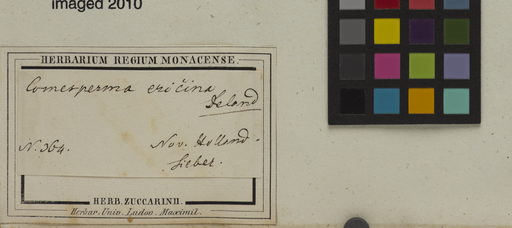 imaged 2010
HERBARIUM REGIUM MONACENSE.
Comesperma ericina
N. 364.
Nov. Holland.
Sieber.
HERB. ZUCCARINII.
Herbar. Univ. Ludov. Maximil.